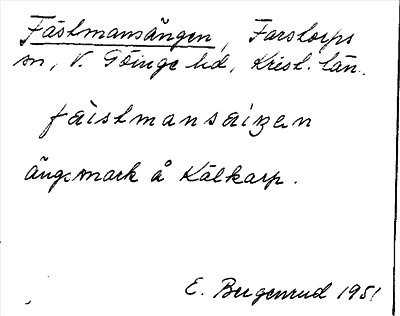 Fästmansängen, Farstorps
sn, V. Göinge hd, Krist. län.
fäistmansäiŋen
ängsmark å Kälkarp.
E. Bergenrud 1951